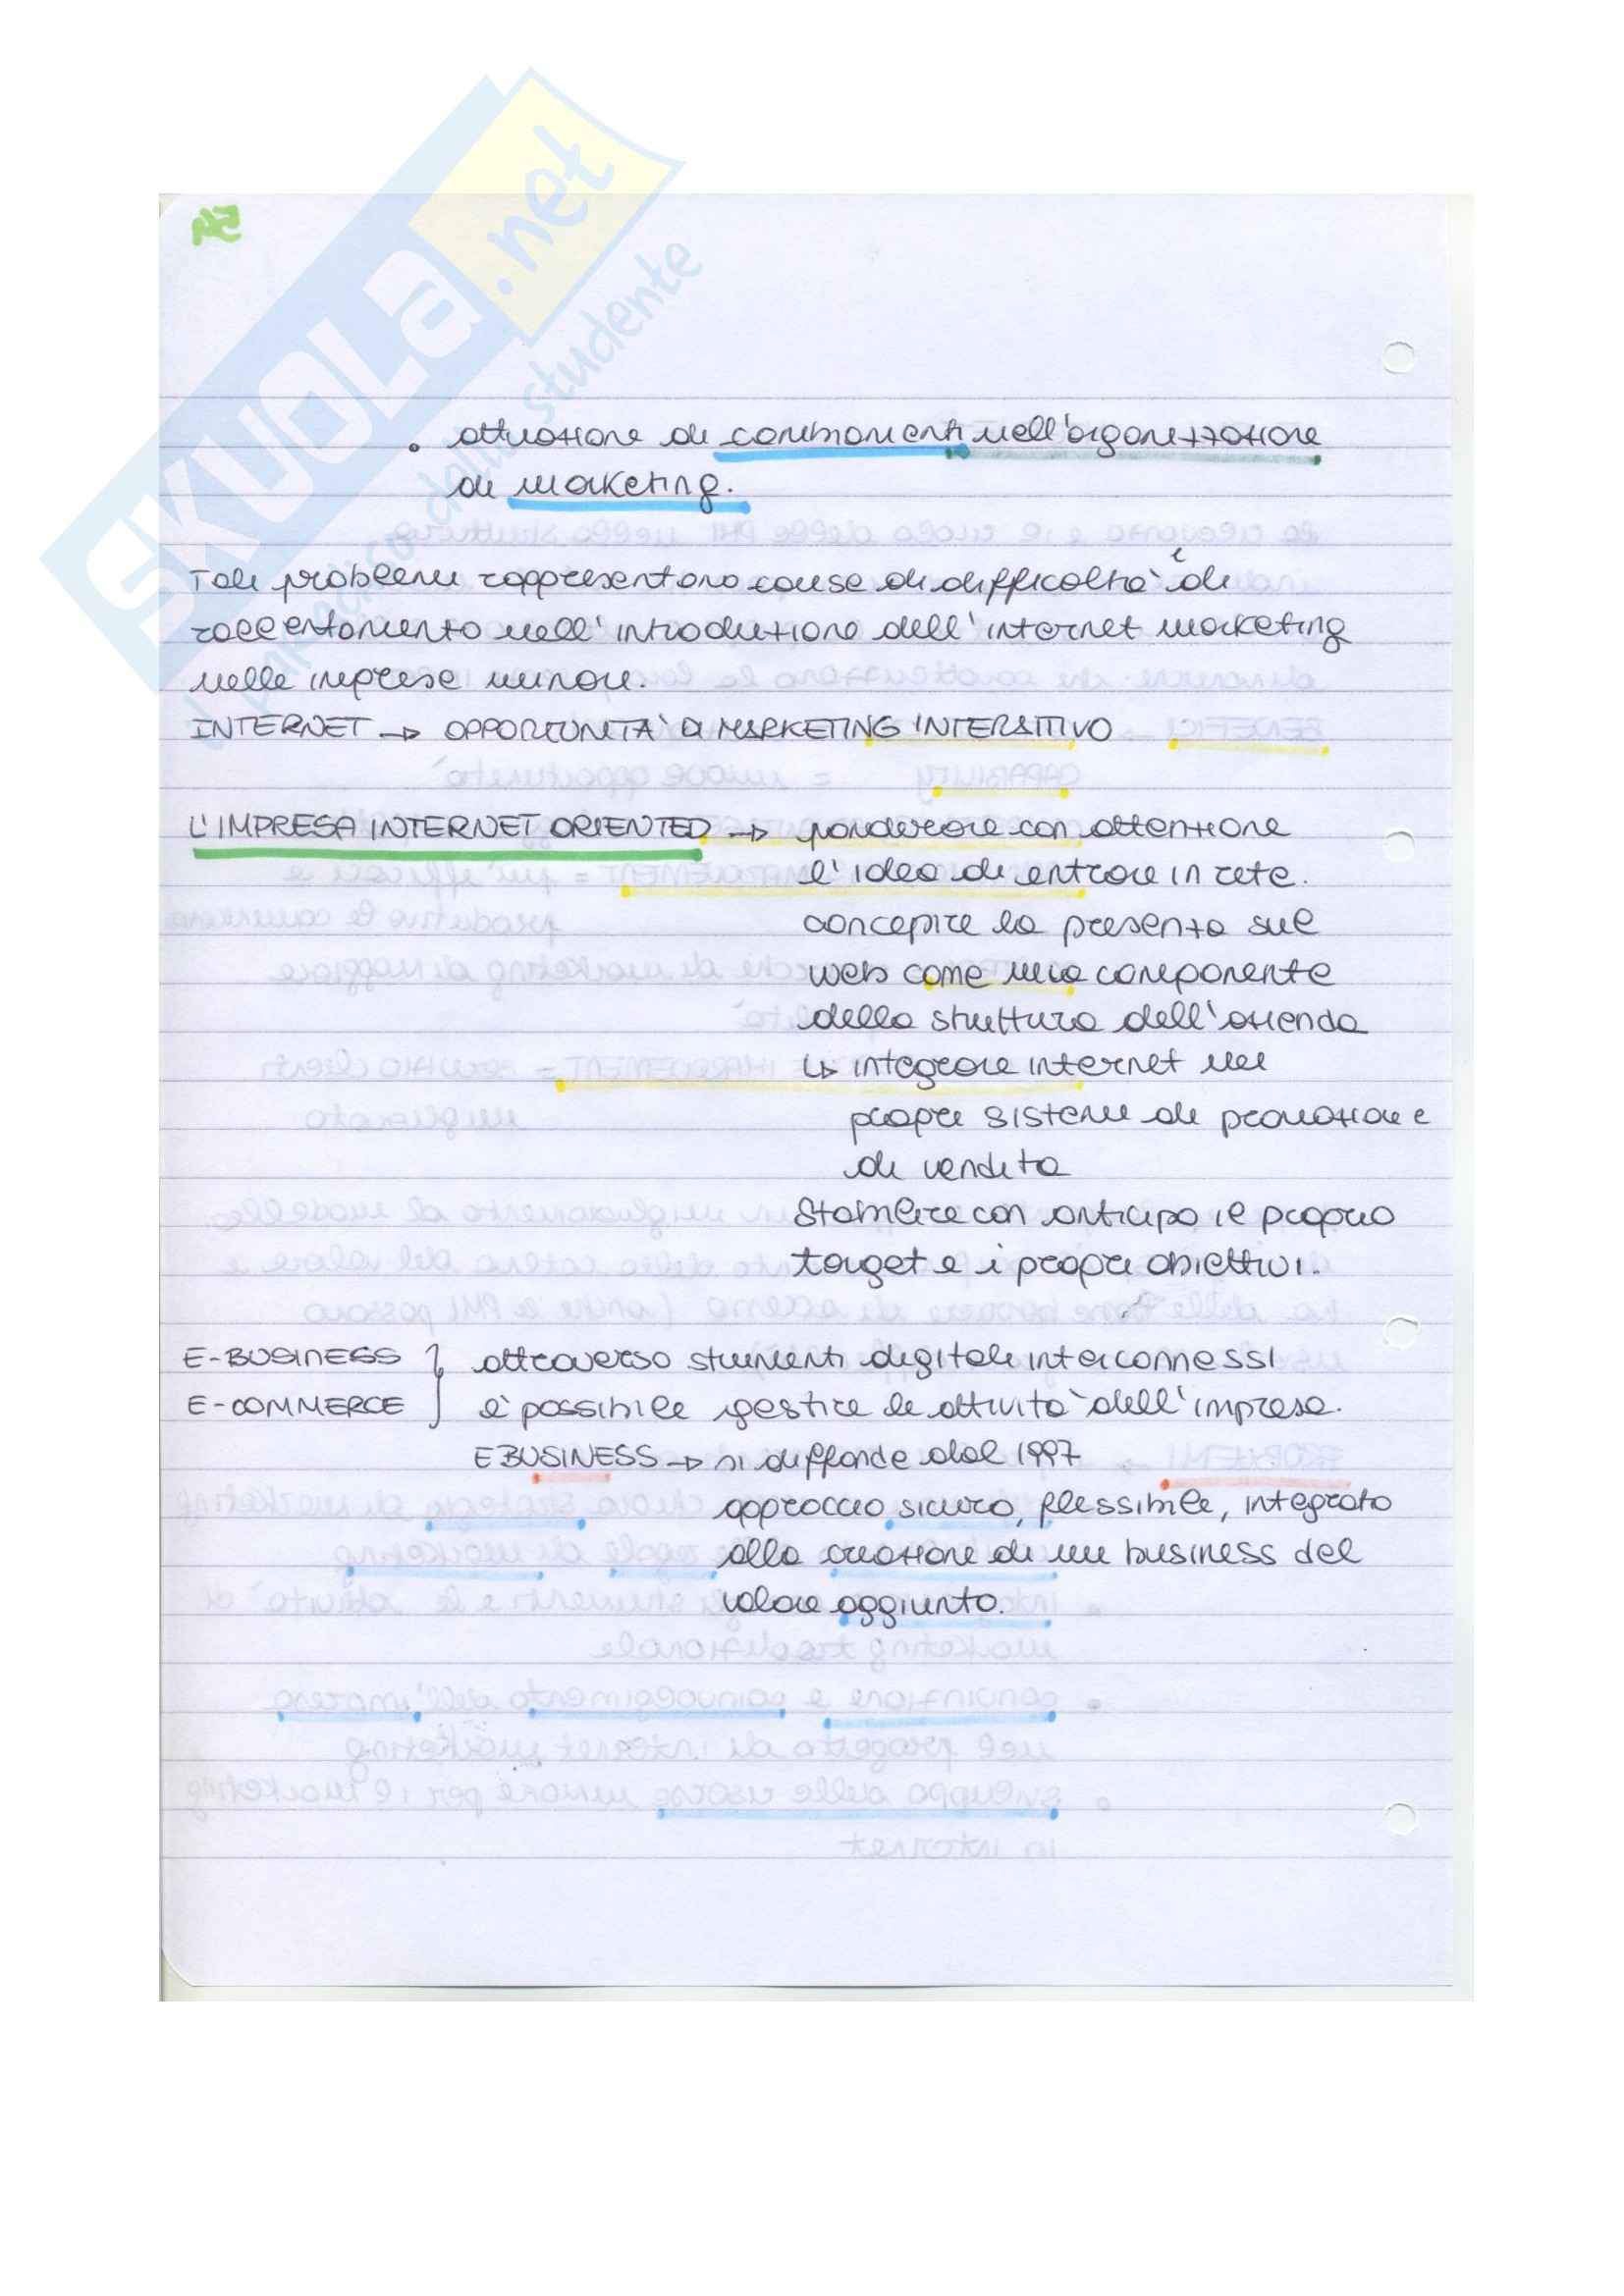 SKUOLA.net
• attuazione di cambiamenti nell'organizzazione
di marketing.
Tali problemi rappresentano cause di difficoltà e di
rallentamento nell'introduzione dell'internet marketing
nelle imprese minori.
INTERNET → OPPORTUNITA' DI MARKETING INTERATTIVO
L'IMPRESA INTERNET ORIENTED → ponderare con attenzione
l'idea di entrare in rete.
concepire la presenza sul
web come una componente
della struttura dell'azienda
↳ integrare internet nei
propri sistemi di promozione e
di vendita
Stabilire con anticipo il proprio
target e i propri obiettivi.
E-BUSINESS } attraverso strumenti digitali interconnessi
E-COMMERCE } è possibile gestire le attività dell'impresa.
EBUSINESS → si diffonde dal 1997
approccio sicuro, flessibile, integrato
alla creazione di un business del
valore aggiunto.